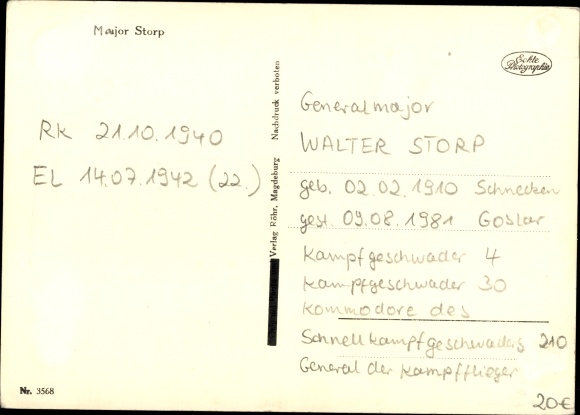 Major Storp
Echte
Photographie
RK 21.10.1940
EL 14.07.1942 (22.)
Verlag Röhr, Magdeburg Nachdruck verboten
Generalmajor
WALTER STORP
geb. 02.02.1910 Schnecken
gest. 09.08.1981 Goslar
Kampfgeschwader 4
Kampfgeschwader 30
Kommodore des
Schnellkampfgeschwaders 210
General der Kampfflieger
Nr. 3568
20€